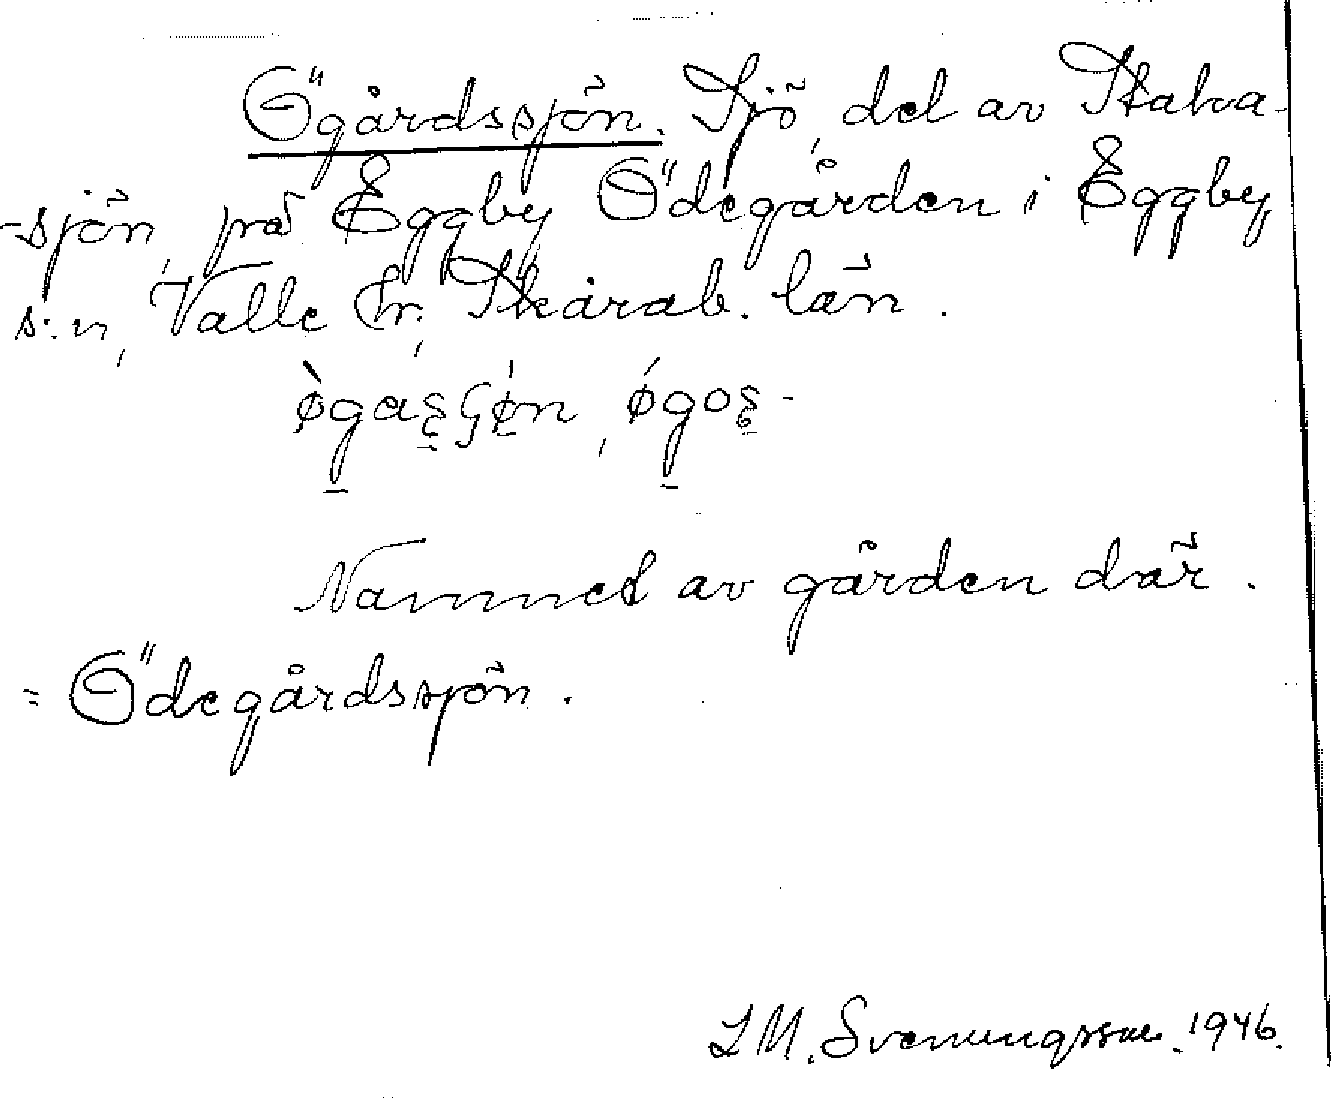 Ögårdssjön. Sjö, del av Skalva-
-sjön, på Eggby Ödegården i Eggby
s:n, Valle hr, Skarab. län.
Namnet av gården där.
= Ödegårdssjön.
L M. Svenungsson. 1946.